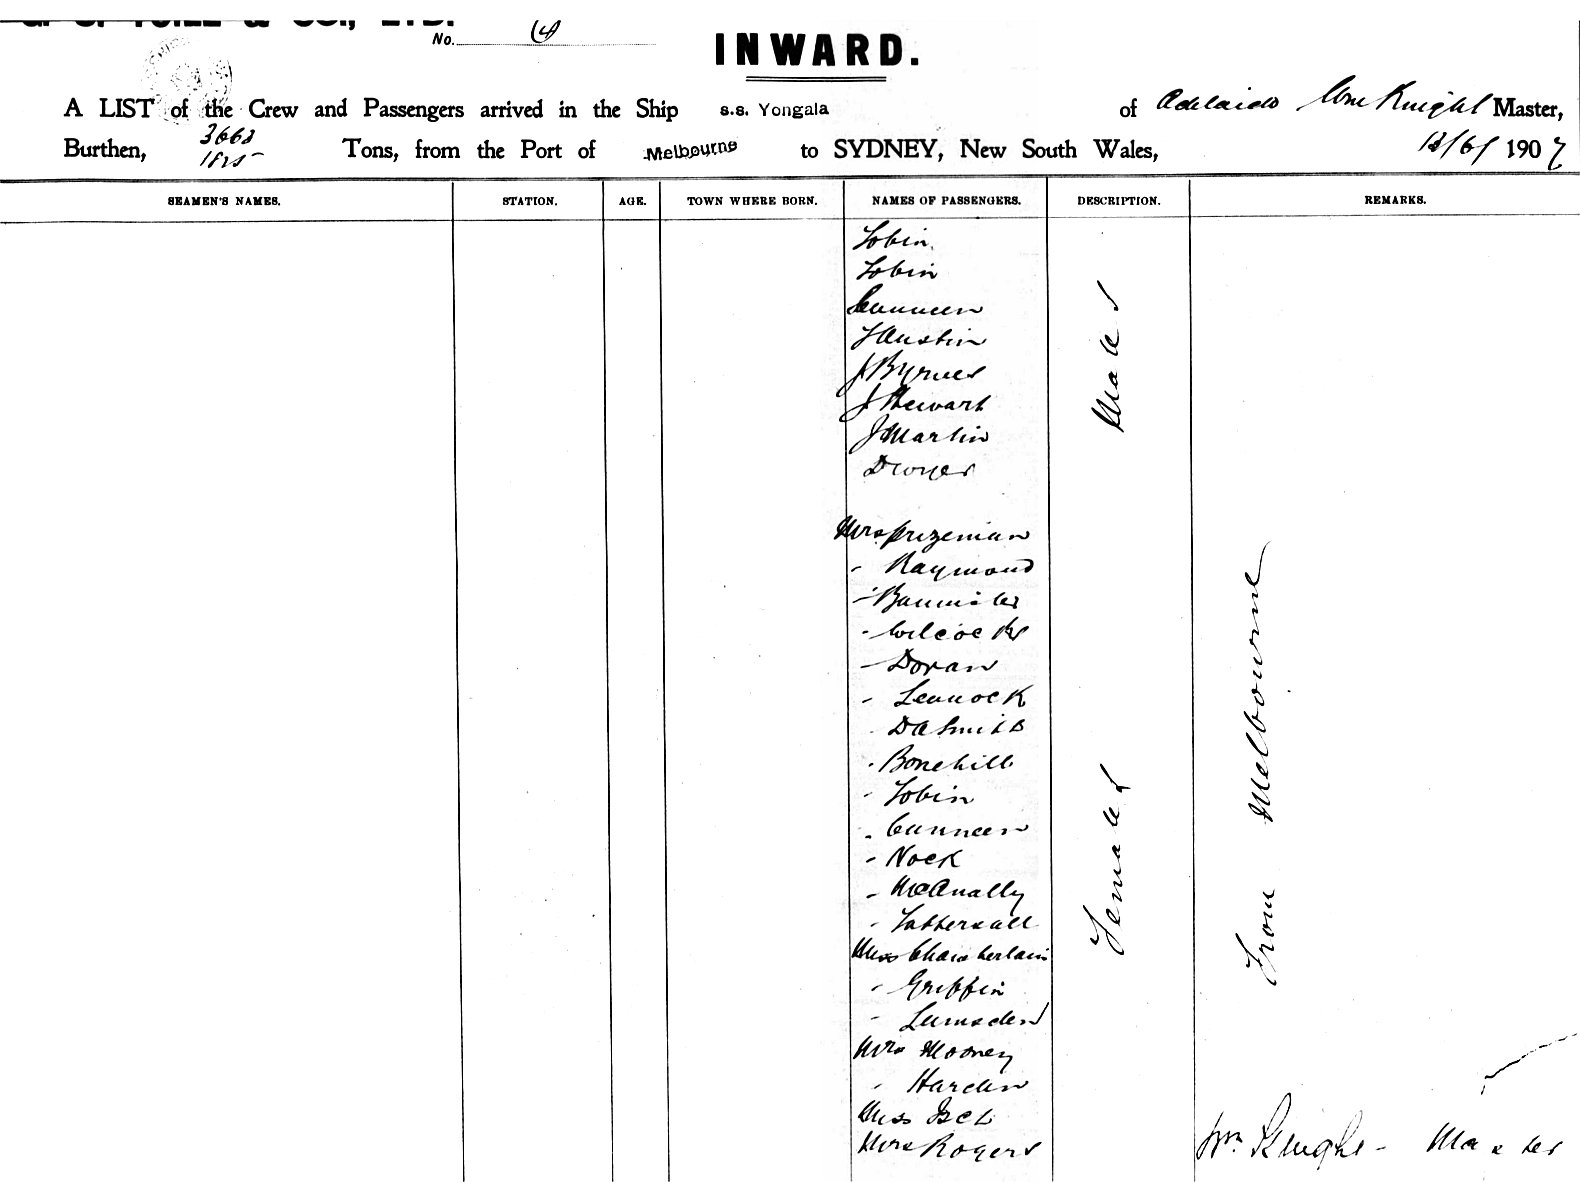 No. (4)
INWARD.
A LIST of the Crew and Passengers arrived in the Ship s.s. Yongala of Adelaide Wm Knight Master,
Burthen, 3663 1825 Tons, from the Port of Melbourne to SYDNEY, New South Wales, 13/6/1907
SEAMEN'S NAMES. STATION. AGE. TOWN WHERE BORN. NAMES OF PASSENGERS. DESCRIPTION. REMARKS.
Tobin
Tobin
Cunneen
J Austin
J Byrnes
J Stewart
J Martin
Dwyer
Males
Mrs Prizeman
- Raymond
- Bannister
- Wilcocks
- Doran
- Lennock
- DA Smith
- Bonehill
- Tobin
- Cunneen
- Nock
- McAnally
- Tattersall
Miss Chamberlain
- Griffin
- Lumsden
Mrs Mooney
- Harden
Miss
Mrs Rogers
Females
From Melbourne
Wm Knight - Master